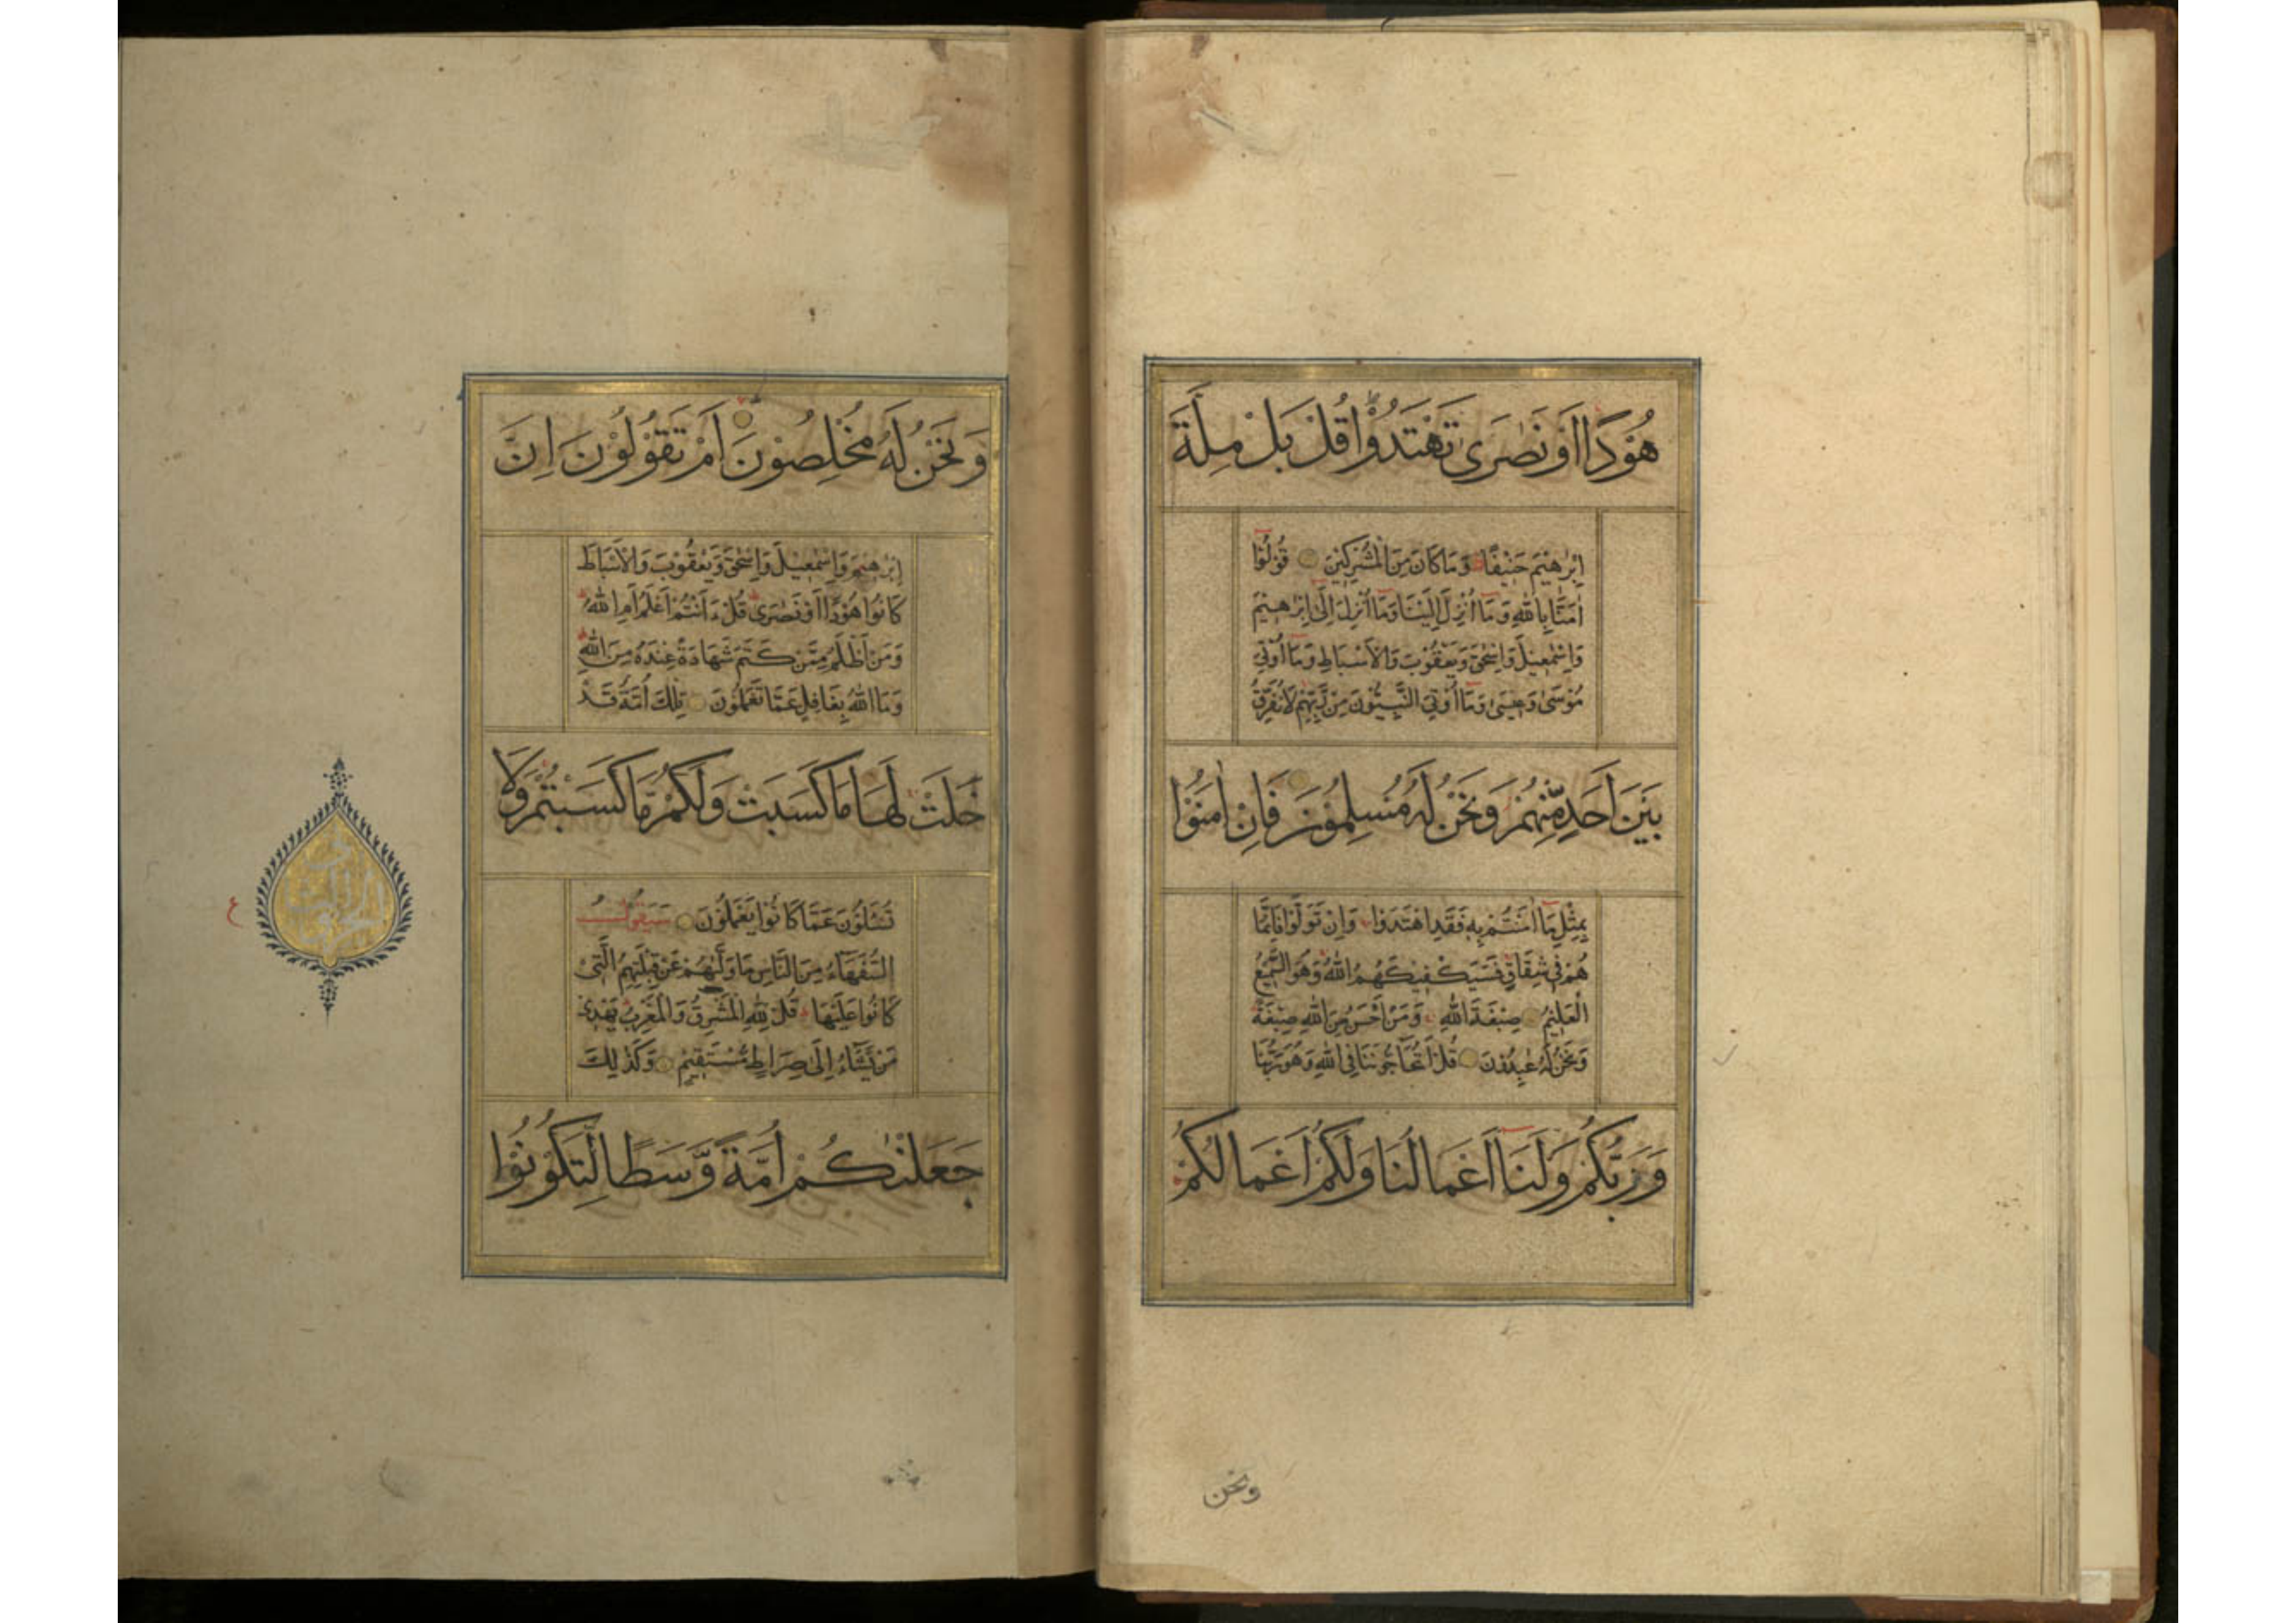 هُوْدًا اَوْ نَصٰرٰى تَهْتَدُوْا قُلْ بَلْ مِلَّةَ
اِبْرٰهٖيْمَ حَنِيْفًا وَمَا كَانَ مِنَ الْمُشْرِكِيْنَ قُوْلُوْٓا
اٰمَنَّا بِاللّٰهِ وَمَآ اُنْزِلَ اِلَيْنَا وَمَآ اُنْزِلَ اِلٰٓى اِبْرٰهٖيْمَ
وَاِسْمٰعِيْلَ وَاِسْحٰقَ وَيَعْقُوْبَ وَالْاَسْبَاطِ وَمَآ اُوْتِيَ
مُوْسٰى وَعِيْسٰى وَمَآ اُوْتِيَ النَّبِيُّوْنَ مِنْ رَّبِّهِمْ لَا نُفَرِّقُ
بَيْنَ اَحَدٍ مِّنْهُمْ وَنَحْنُ لَهٗ مُسْلِمُوْنَ فَاِنْ اٰمَنُوْا
بِمِثْلِ مَآ اٰمَنْتُمْ بِهٖ فَقَدِ اهْتَدَوْا وَاِنْ تَوَلَّوْا فَاِنَّمَا
هُمْ فِيْ شِقَاقٍ فَسَيَكْفِيْكَهُمُ اللّٰهُ وَهُوَ السَّمِيْعُ
الْعَلِيْمُ صِبْغَةَ اللّٰهِ وَمَنْ اَحْسَنُ مِنَ اللّٰهِ صِبْغَةً
وَنَحْنُ لَهٗ عٰبِدُوْنَ قُلْ اَتُحَآجُّوْنَنَا فِى اللّٰهِ وَهُوَ رَبُّنَا
وَرَبُّكُمْ وَلَنَآ اَعْمَالُنَا وَلَكُمْ اَعْمَالُكُمْ
ونحن
وَنَحْنُ لَهٗ مُخْلِصُوْنَ اَمْ تَقُوْلُوْنَ اِنَّ
اِبْرٰهٖيْمَ وَاِسْمٰعِيْلَ وَاِسْحٰقَ وَيَعْقُوْبَ وَالْاَسْبَاطَ
كَانُوْا هُوْدًا اَوْ نَصٰرٰى قُلْ ءَاَنْتُمْ اَعْلَمُ اَمِ اللّٰهُ
وَمَنْ اَظْلَمُ مِمَّنْ كَتَمَ شَهَادَةً عِنْدَهٗ مِنَ اللّٰهِ
وَمَا اللّٰهُ بِغَافِلٍ عَمَّا تَعْمَلُوْنَ تِلْكَ اُمَّةٌ قَدْ
خَلَتْ لَهَا مَا كَسَبَتْ وَلَكُمْ مَّا كَسَبْتُمْ وَلَا
تُسْئَلُوْنَ عَمَّا كَانُوْا يَعْمَلُوْنَ سَيَقُوْلُ
السُّفَهَآءُ مِنَ النَّاسِ مَا وَلّٰىهُمْ عَنْ قِبْلَتِهِمُ الَّتِيْ
كَانُوْا عَلَيْهَا قُلْ لِلّٰهِ الْمَشْرِقُ وَالْمَغْرِبُ يَهْدِيْ
مَنْ يَّشَآءُ اِلٰى صِرَاطٍ مُّسْتَقِيْمٍ وَكَذٰلِكَ
جَعَلْنٰكُمْ اُمَّةً وَّسَطًا لِّتَكُوْنُوْا
ع